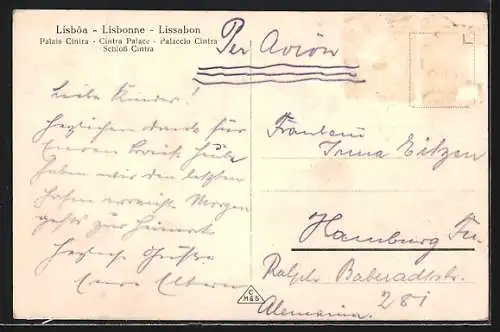 Lisbôa - Lisbonne - Lissabon
Palais Cintra - Cintra Palace - Palaccio Cintra
Schloß Cintra
Per Avion
Liebe Kinder!
Herzlichen Dank für
Eueren Brief. Heute
haben wir den letzten
Hafen erreicht. Morgen
gehts zur Heimat.
Herzliche Grüße
Eure Eltern
Fräulein
Irma Eitzen
Hamburg Fu.
281
Alemania.
C
M&S